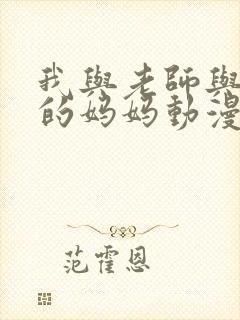 我與老師與
的妈妈動漫
范霍恩